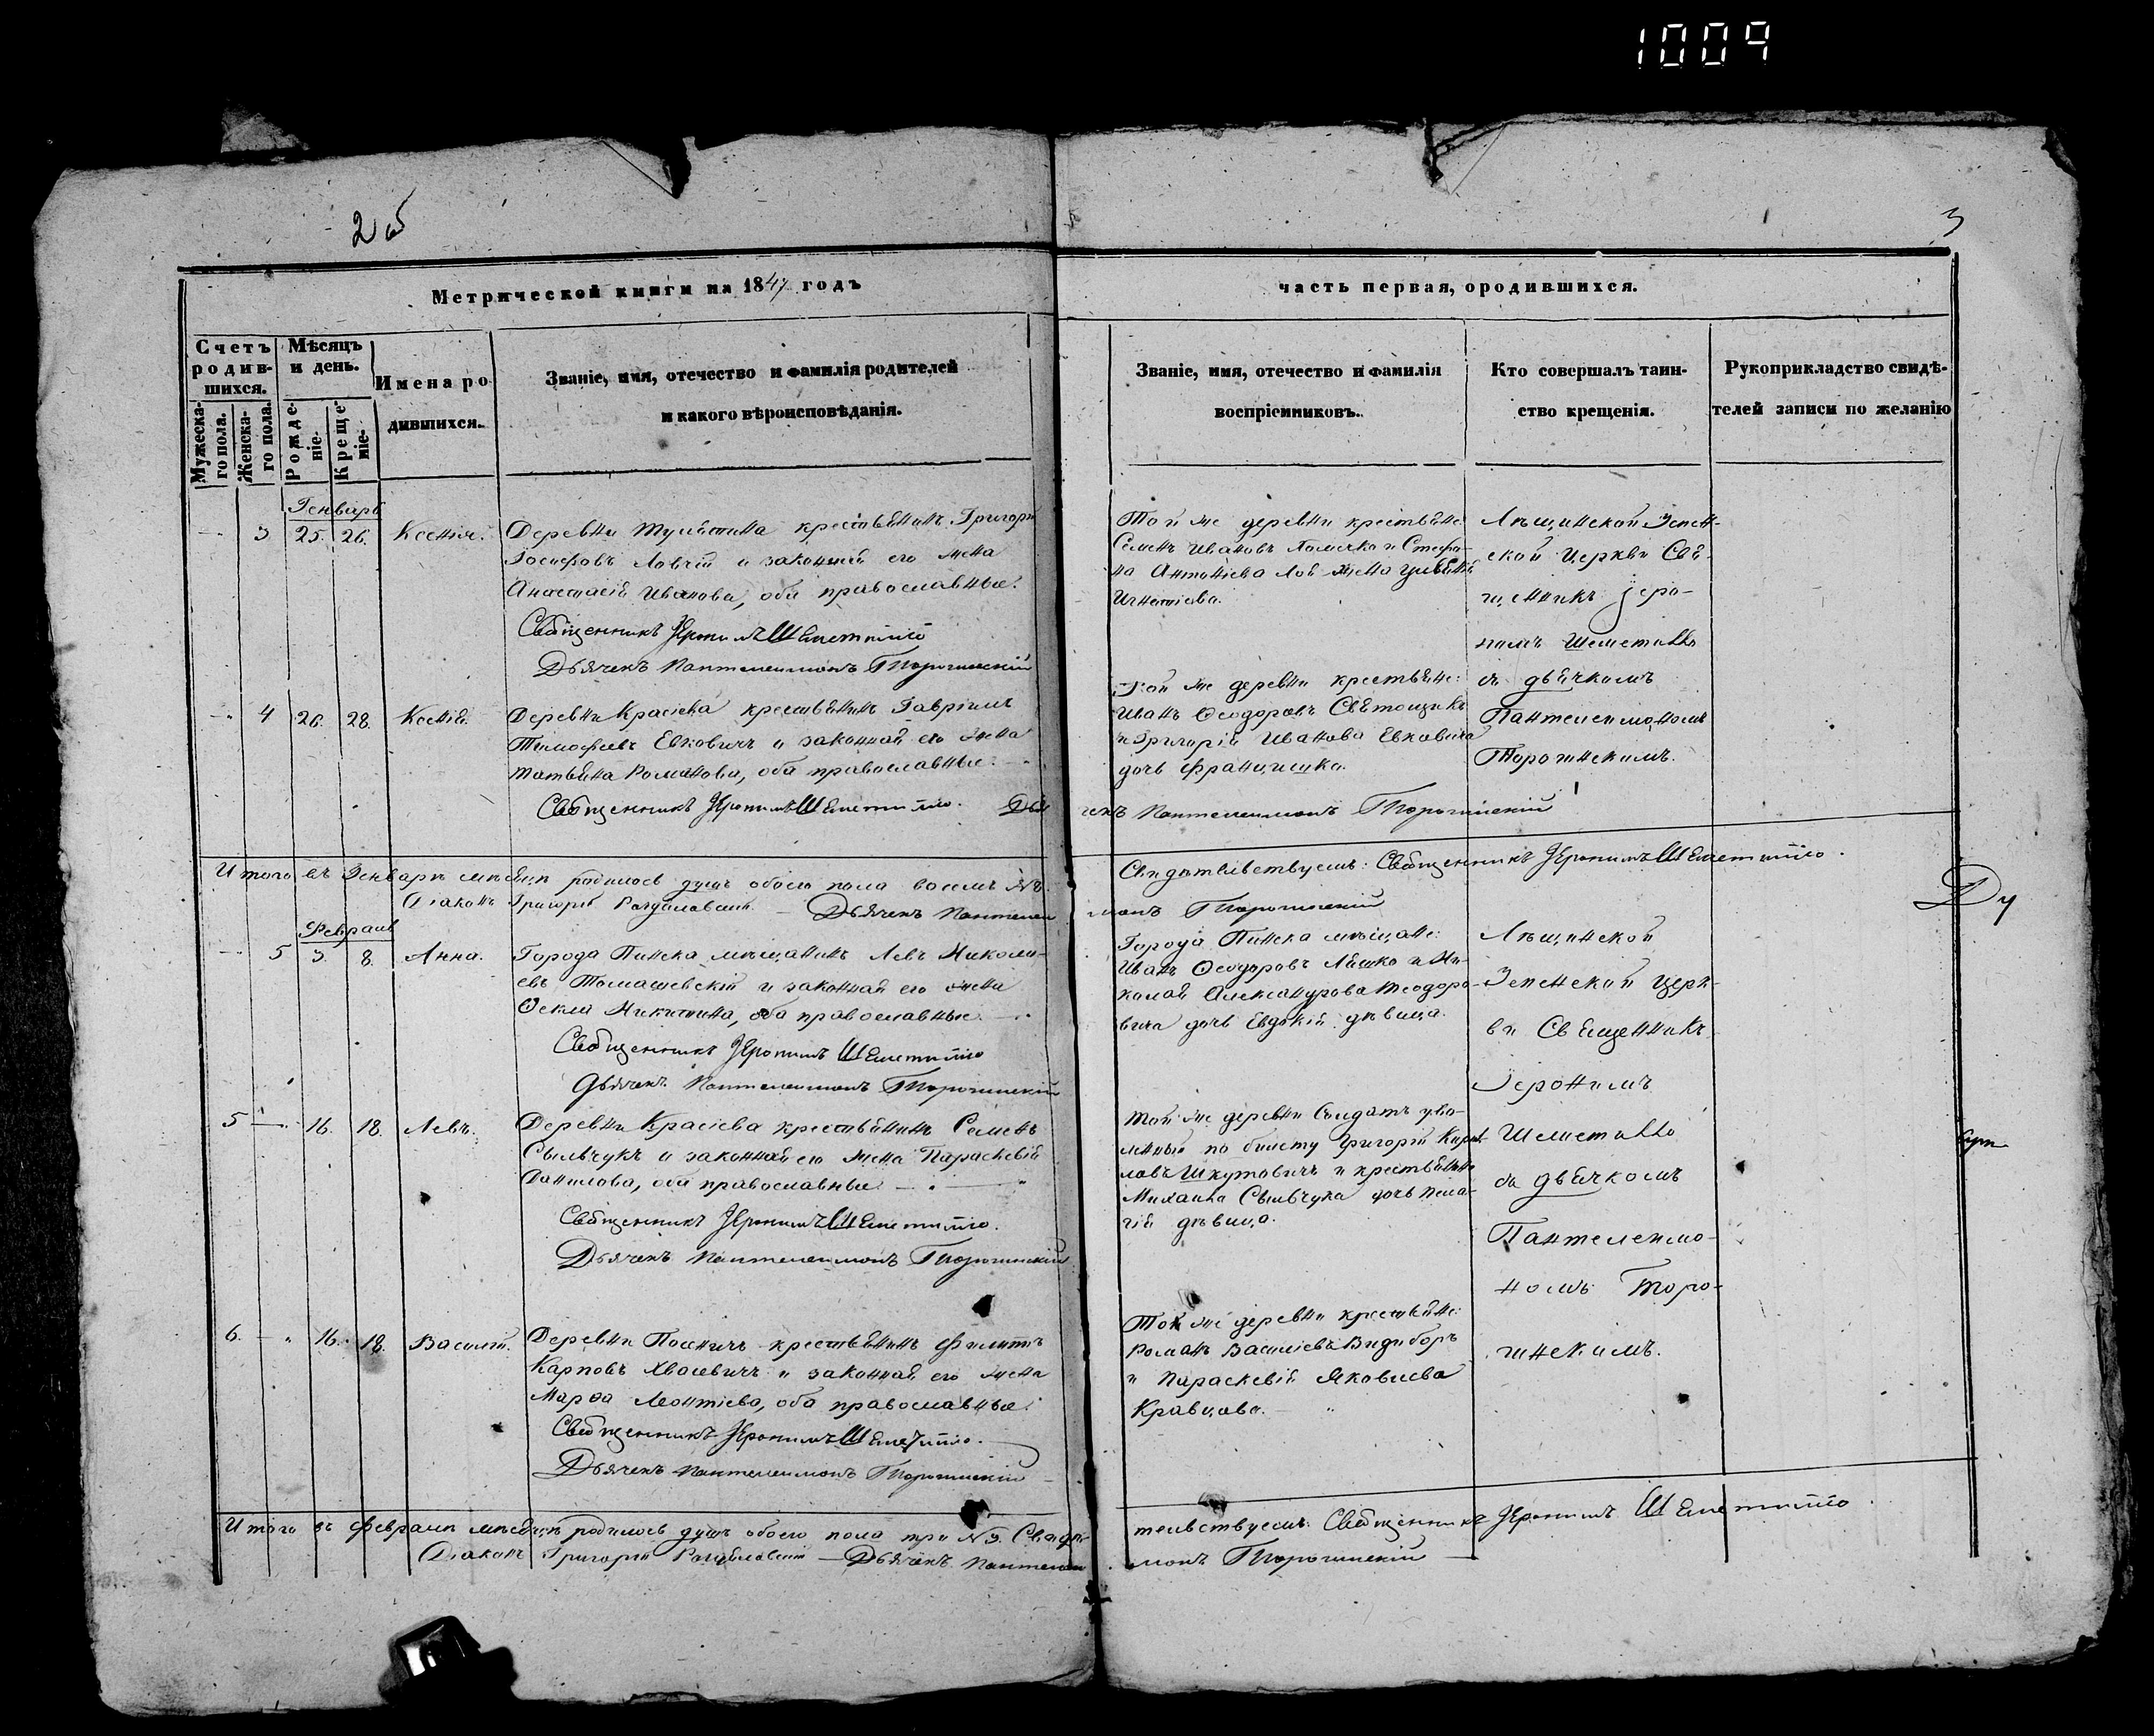 1009
2об
3
Метрической книги на 1847 годъ
часть первая, ородившихся.
Счетъ родив-шихся.
Мужеска-го пола.
Женска-го пола.
Мѣсяцъ и день.
Рожде-ніе.
Креще-ніе.
Имена ро
дившихся.
Званіе, имя, отечество и фамилія родителей
и какого вѣроисповѣданія.
Званіе, имя, отечество и фамилія
воспріемниковъ.
Кто совершалъ таин-
ство крещенія.
Рукоприкладство свидѣ-
телей записи по желанію
Генварь
3 25. 26. Ксенія.
Деревни крестьянинъ Григорій
Іосифовъ Ловчій и законная его жена
Анастасія Иванова, оба православные.
Священникъ Іеронимъ Шеметилло
Дьячекъ Пантелеимонъ
Той же деревни крестьяне:
Семенъ Ивановъ и Стефа-
на Антонѣева жена
Игнатіева.
Лѣщинской
ской Церкви Свя-
щенникъ Іеро-
нимъ Шеметилло
съ дьячкомъ
Пантелеимономъ
4 26. 28. Ксенія.
Деревни Красіева крестьянинъ Гавріилъ
Тимофеевъ Евковичъ и законная его жена
Татьяна Романова, оба православные.
Священникъ Іеронимъ Шеметилло. Дья
чекъ Пантелеимонъ
Той же деревни крестьяне:
Иванъ Ѳеодоровъ
и Григорія Иванова Евковича
дочь Францишка.
Итого въ Генварѣ мѣсяцѣ родилось душъ обоего пола восемь №8.
Свидѣтельствуемъ: Священникъ Іеронимъ Шеметилло.
Діаконъ Григорій — Дьячекъ Пантелеи
монъ
Февраль
5 3. 8. Анна.
Города Пинска мѣщанинъ Левъ Николa-
евъ Томашевскій и законная его жена
Ѳекла Никитина, оба православные.
Священникъ Іеронимъ Шеметилло
Дьячекъ Пантелеимонъ
Города Пинска мѣщане:
Иванъ Ѳеодоровъ Ляшко и Ни-
колая Александрова Теодоро-
вича дочь Евдокія дѣвица.
Лѣщинской
Церк-
ви Священникъ
Іеронимъ
Шеметилло
съ дьячкомъ
Пантелеимо-
номъ Торо-
5 16. 18. Левъ.
Деревни Красіева крестьянинъ Семенъ
Сыльчукъ и законная его жена Параскевія
Данилова, оба православные.
Священникъ Іеронимъ Шеметилло.
Дьячекъ Пантелеимонъ
Той же деревни Солдатъ уво-
ленный по билету Григорій Кирил-
ловъ Шкутовичъ и крестьянина
Михаила Сыльчука дочь Пела-
гія дѣвица.
6. 16. 18. Василій.
Деревни Посеничъ крестьянинъ Филиппъ
Карповъ и законная его жена
Марѳа Леонтіева, оба православные.
Священникъ Іеронимъ Шеметилло.
Дьячекъ Пантелеимонъ
Той же деревни крестьяне:
Романъ Василіевъ Видиборъ
и Параскевія Яковлева
Кравцова.
Итого въ Февралѣ мѣсяцѣ родилось душъ обоего пола три №3. Свидѣ-
тельствуемъ: Священникъ Іеронимъ Шеметилло.
Діаконъ Григорій — Дьячекъ Пантелеи
монъ